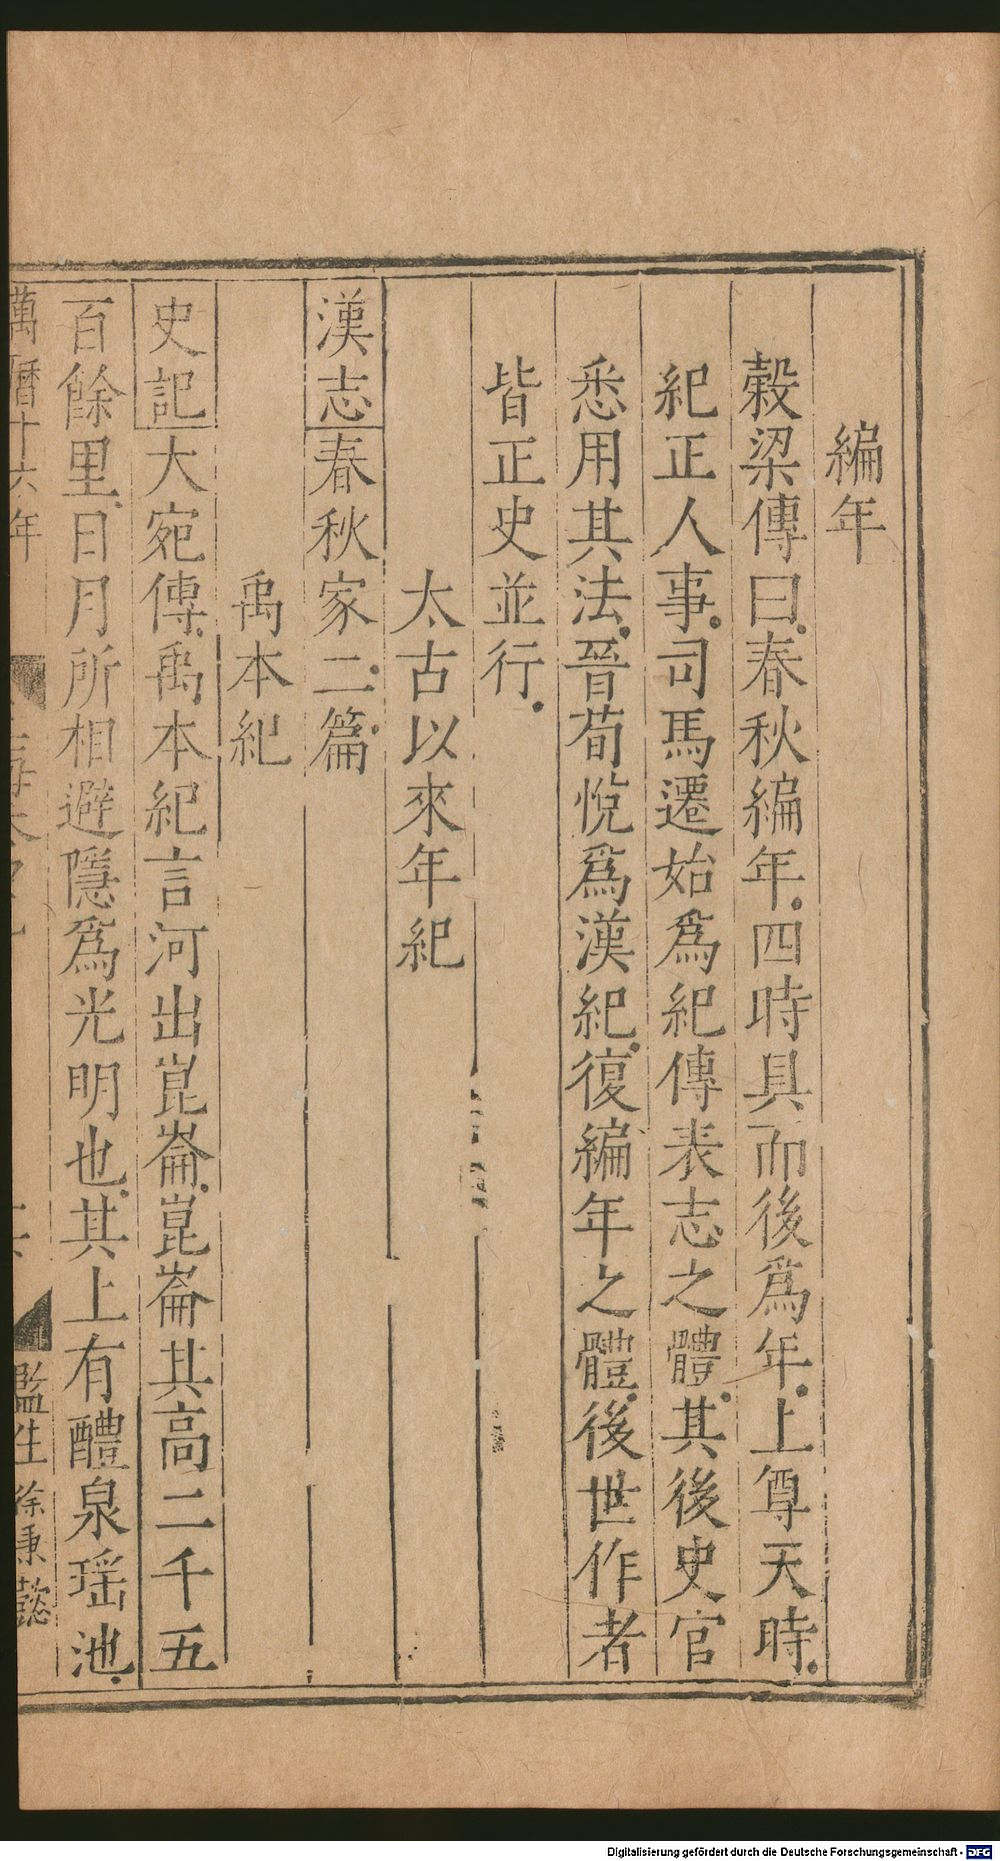 編年
穀梁傳曰春秋編年四時具而後爲年上尊天時
紀正人事司馬遷始爲紀傳表志之體其後史官
悉用其法晉荀悅爲漢紀復編年之體後世作者
皆正史並行
太古以來年紀
漢志春秋家二篇
禹本紀
史記大宛傳禹本紀言河出崑崙崑崙其高二千五
百餘里日月所相避隱爲光明也其上有醴泉瑤池
萬曆十六年
監生徐秉懿
Digitalisierung gefördert durch die Deutsche Forschungsgemeinschaft - DFG